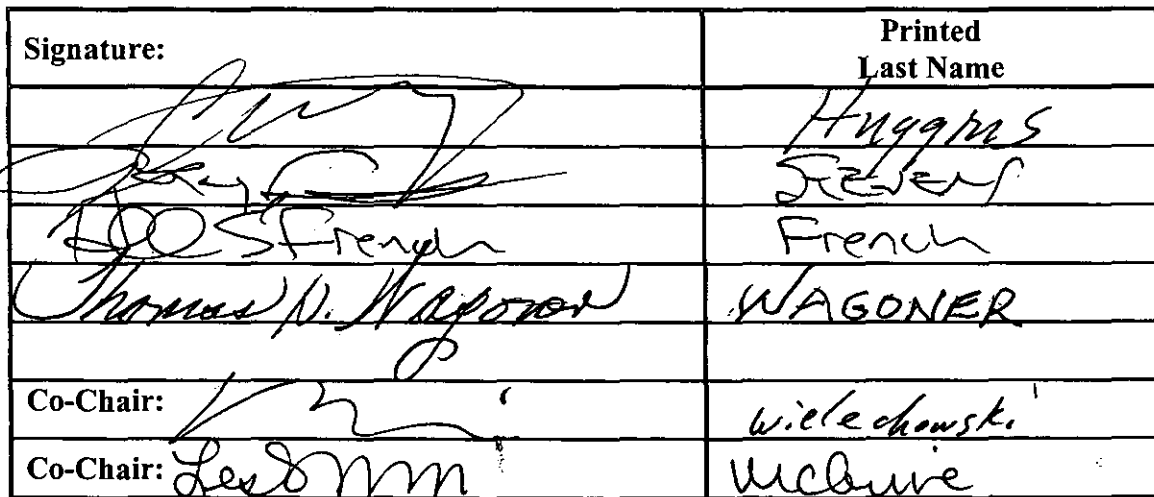 Signature: Printed
Last Name
Huggins
Stevens
S French French
Thomas N. Wagoner WAGONER
Co-Chair: wielechowski
Co-Chair: Lesil McGuire